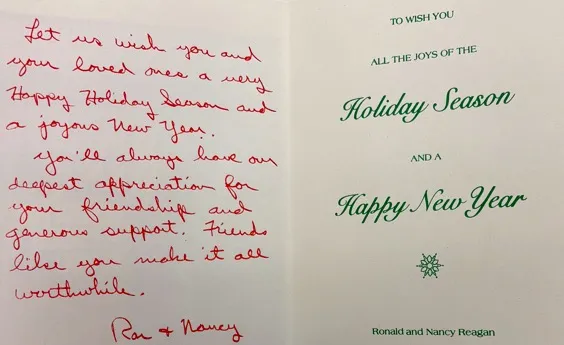 Let us wish you and
your loved ones a very
Happy Holiday Season and
a joyous New Year.
You'll always have our
deepest appreciation for
your friendship and
generous support. Friends
like you make it all
worthwhile.
Ron + Nancy
TO WISH YOU
ALL THE JOYS OF THE
Holiday Season
AND A
Happy New Year
Ronald and Nancy Reagan